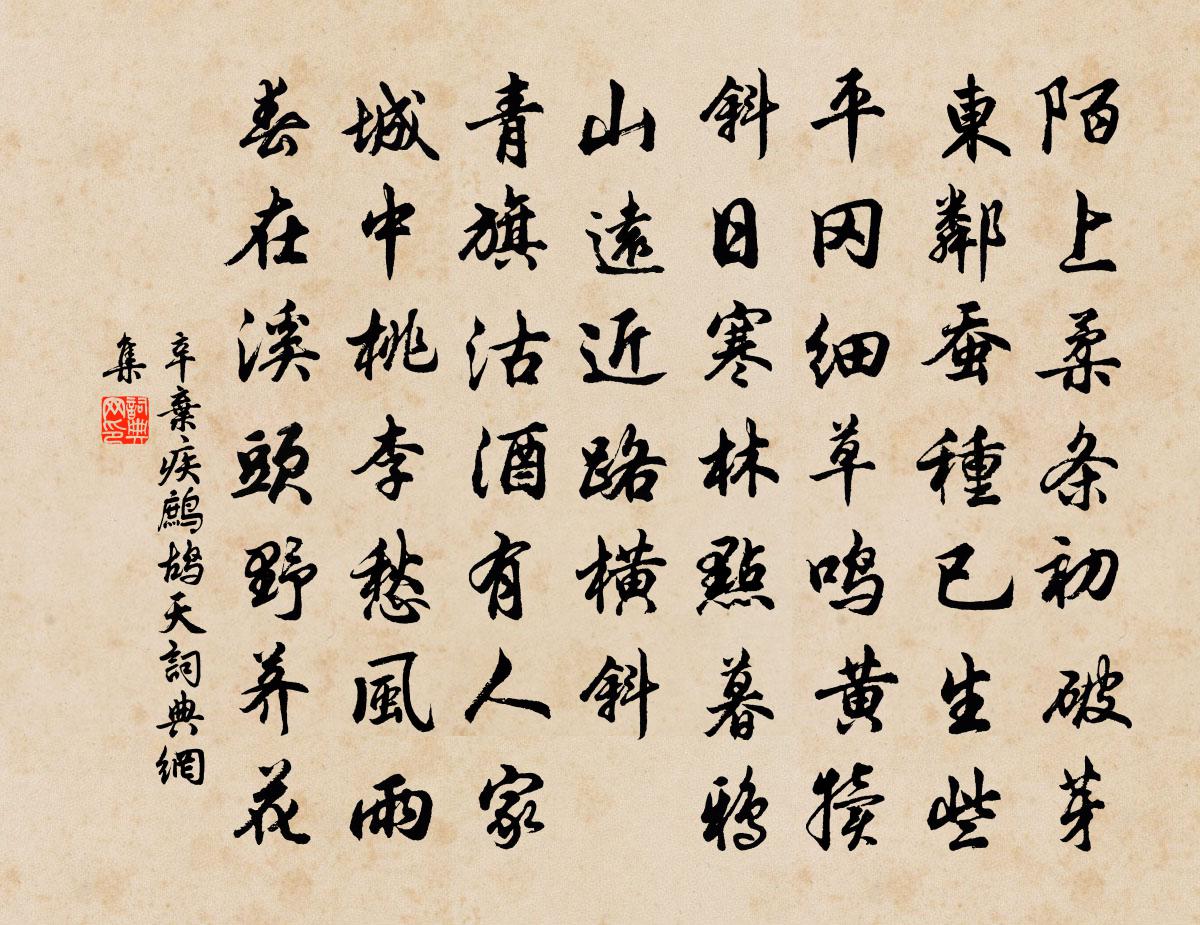 陌上柔条初破芽
東鄰蚕種已生些
平冈细草鸣黄犢
斜日寒林點暮鸦
山遠近路横斜
青旗沽酒有人家
城中桃李愁風雨
春在溪頭野荠花
辛棄疾鷓鸪天詞典網
集
詞典
网印